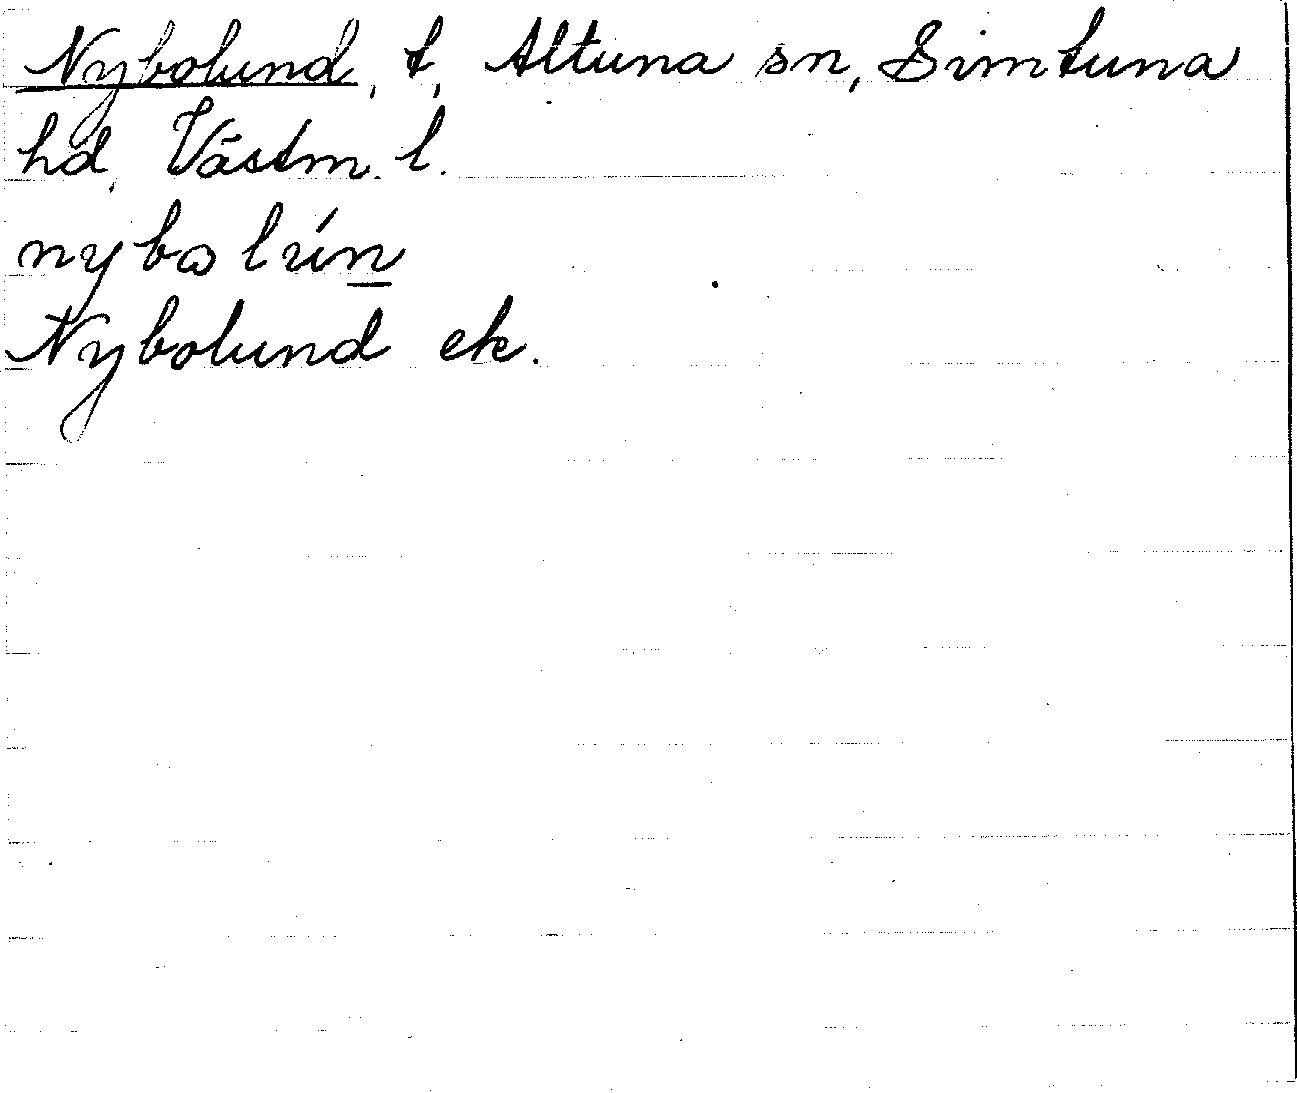 Nybolund, t, Altuna sn, Simtuna
hd, Västm. l.
nybωlún
Nybolund ek.